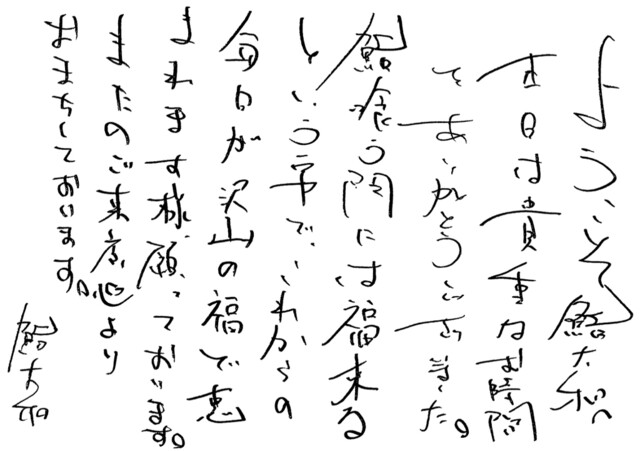 ようこそ鮨
本日は貴重なお時間
ありがとうございました。
鮨喰う門には福来る
という事で、これからの
今日が沢山の福で恵
まれます様願っております。
またのご来店心より
おまちしております。
鮨